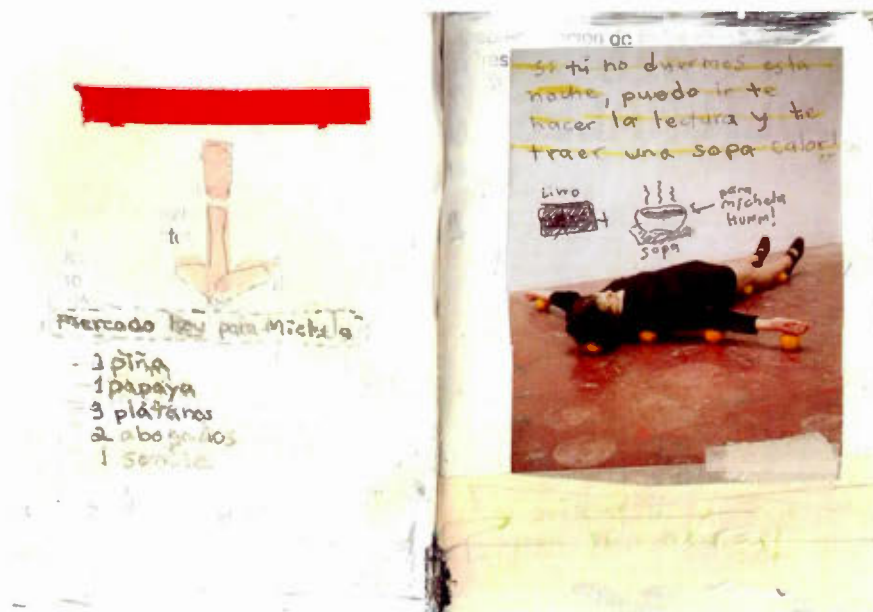 mercado hoy para Michela
piña
1 papaya
3 plátanos
2 abogados
1 sandía
ac
si tú no duermes esta
noche, puedo ir te
hacer la lectura y te
traer una sopa calor!
Livro
sopa
para
Michela
HUMM!